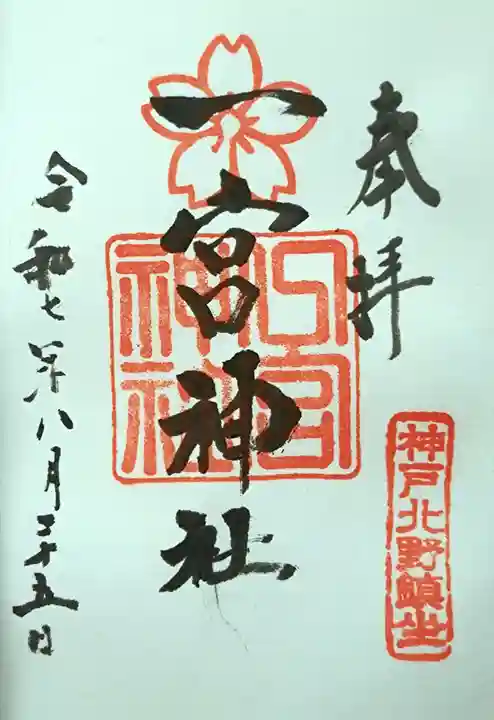 奉拝
神戸北野鎮坐
一宮神社
令和七年八月二十五日